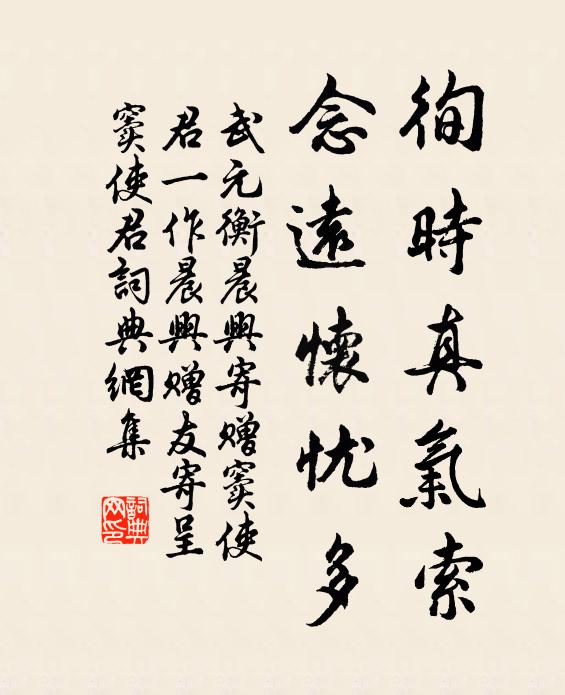 徇時真氣索
念遠懷忧多
武元衡晨興寄贈竇使
君一作晨興贈友寄呈
竇使君詞典網集
詞典网印